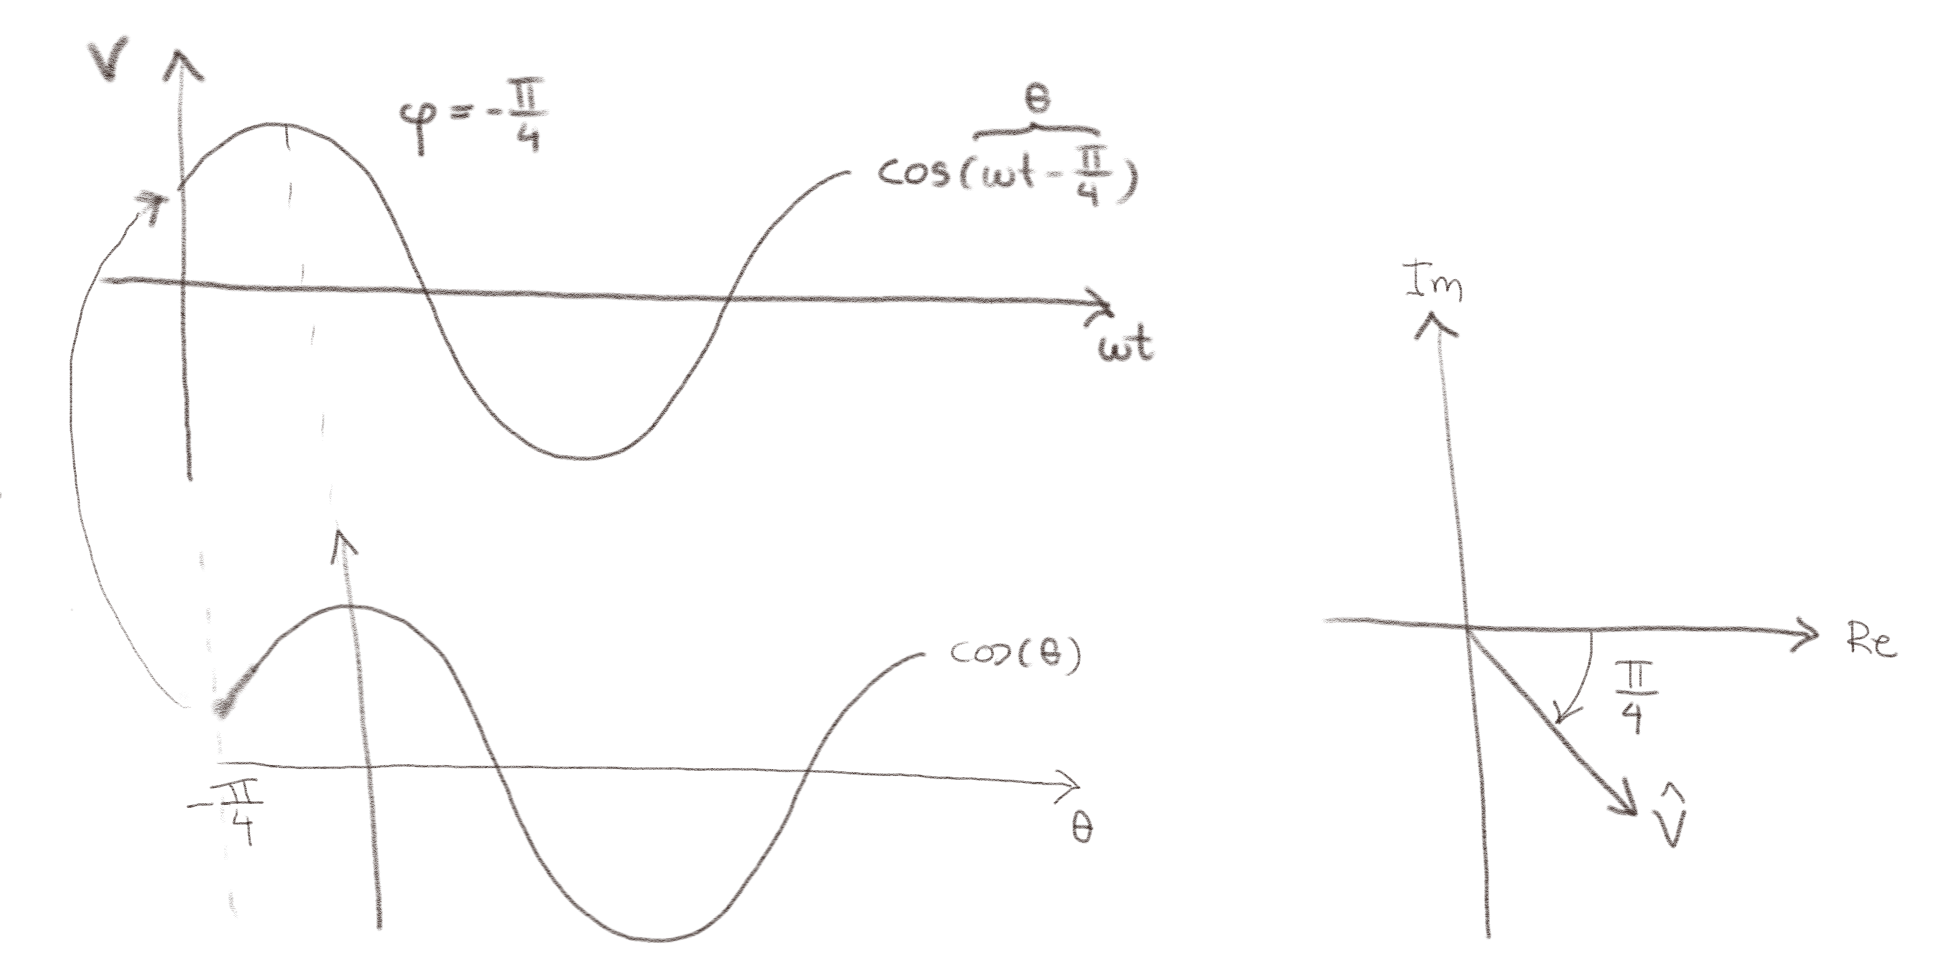 V
φ = -π/4
θ
cos(ωt - π/4)
ωt
cos(θ)
-π/4
θ
Im
Re
π/4
V̂